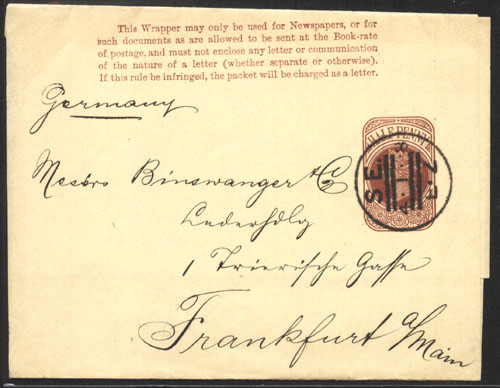 This Wrapper may only be used for Newspapers, or for
such documents as are allowed to be sent at the Book-rate
of postage, and must not enclose any letter or communication
of the nature of a letter (whether separate or otherwise).
If this rule be infringed, the packet will be charged as a letter.
Germany
HALF PENNY
S.E.
Messrs Binswanger & Co
Lederhdlg
1 Trierische Gasse
Frankfurt a/Main